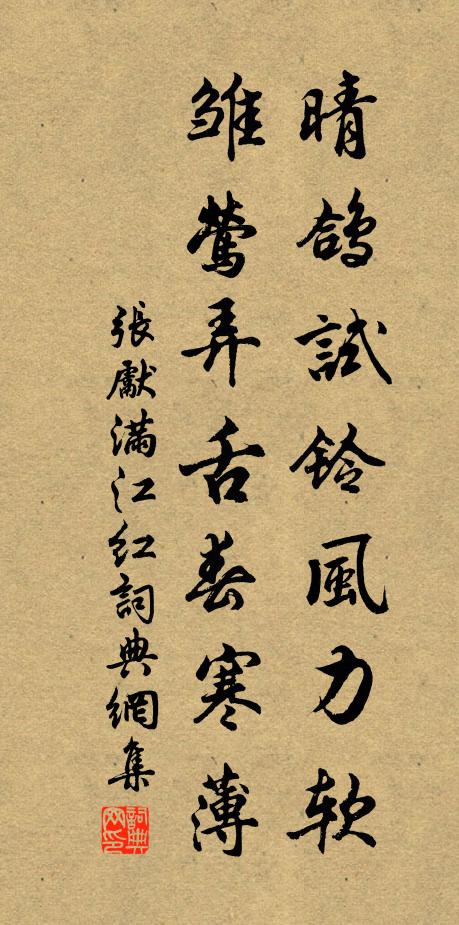 晴鴿試鈴風力軟
雛鶯弄舌春寒薄
張獻滿江紅詞典網集
詞典网印